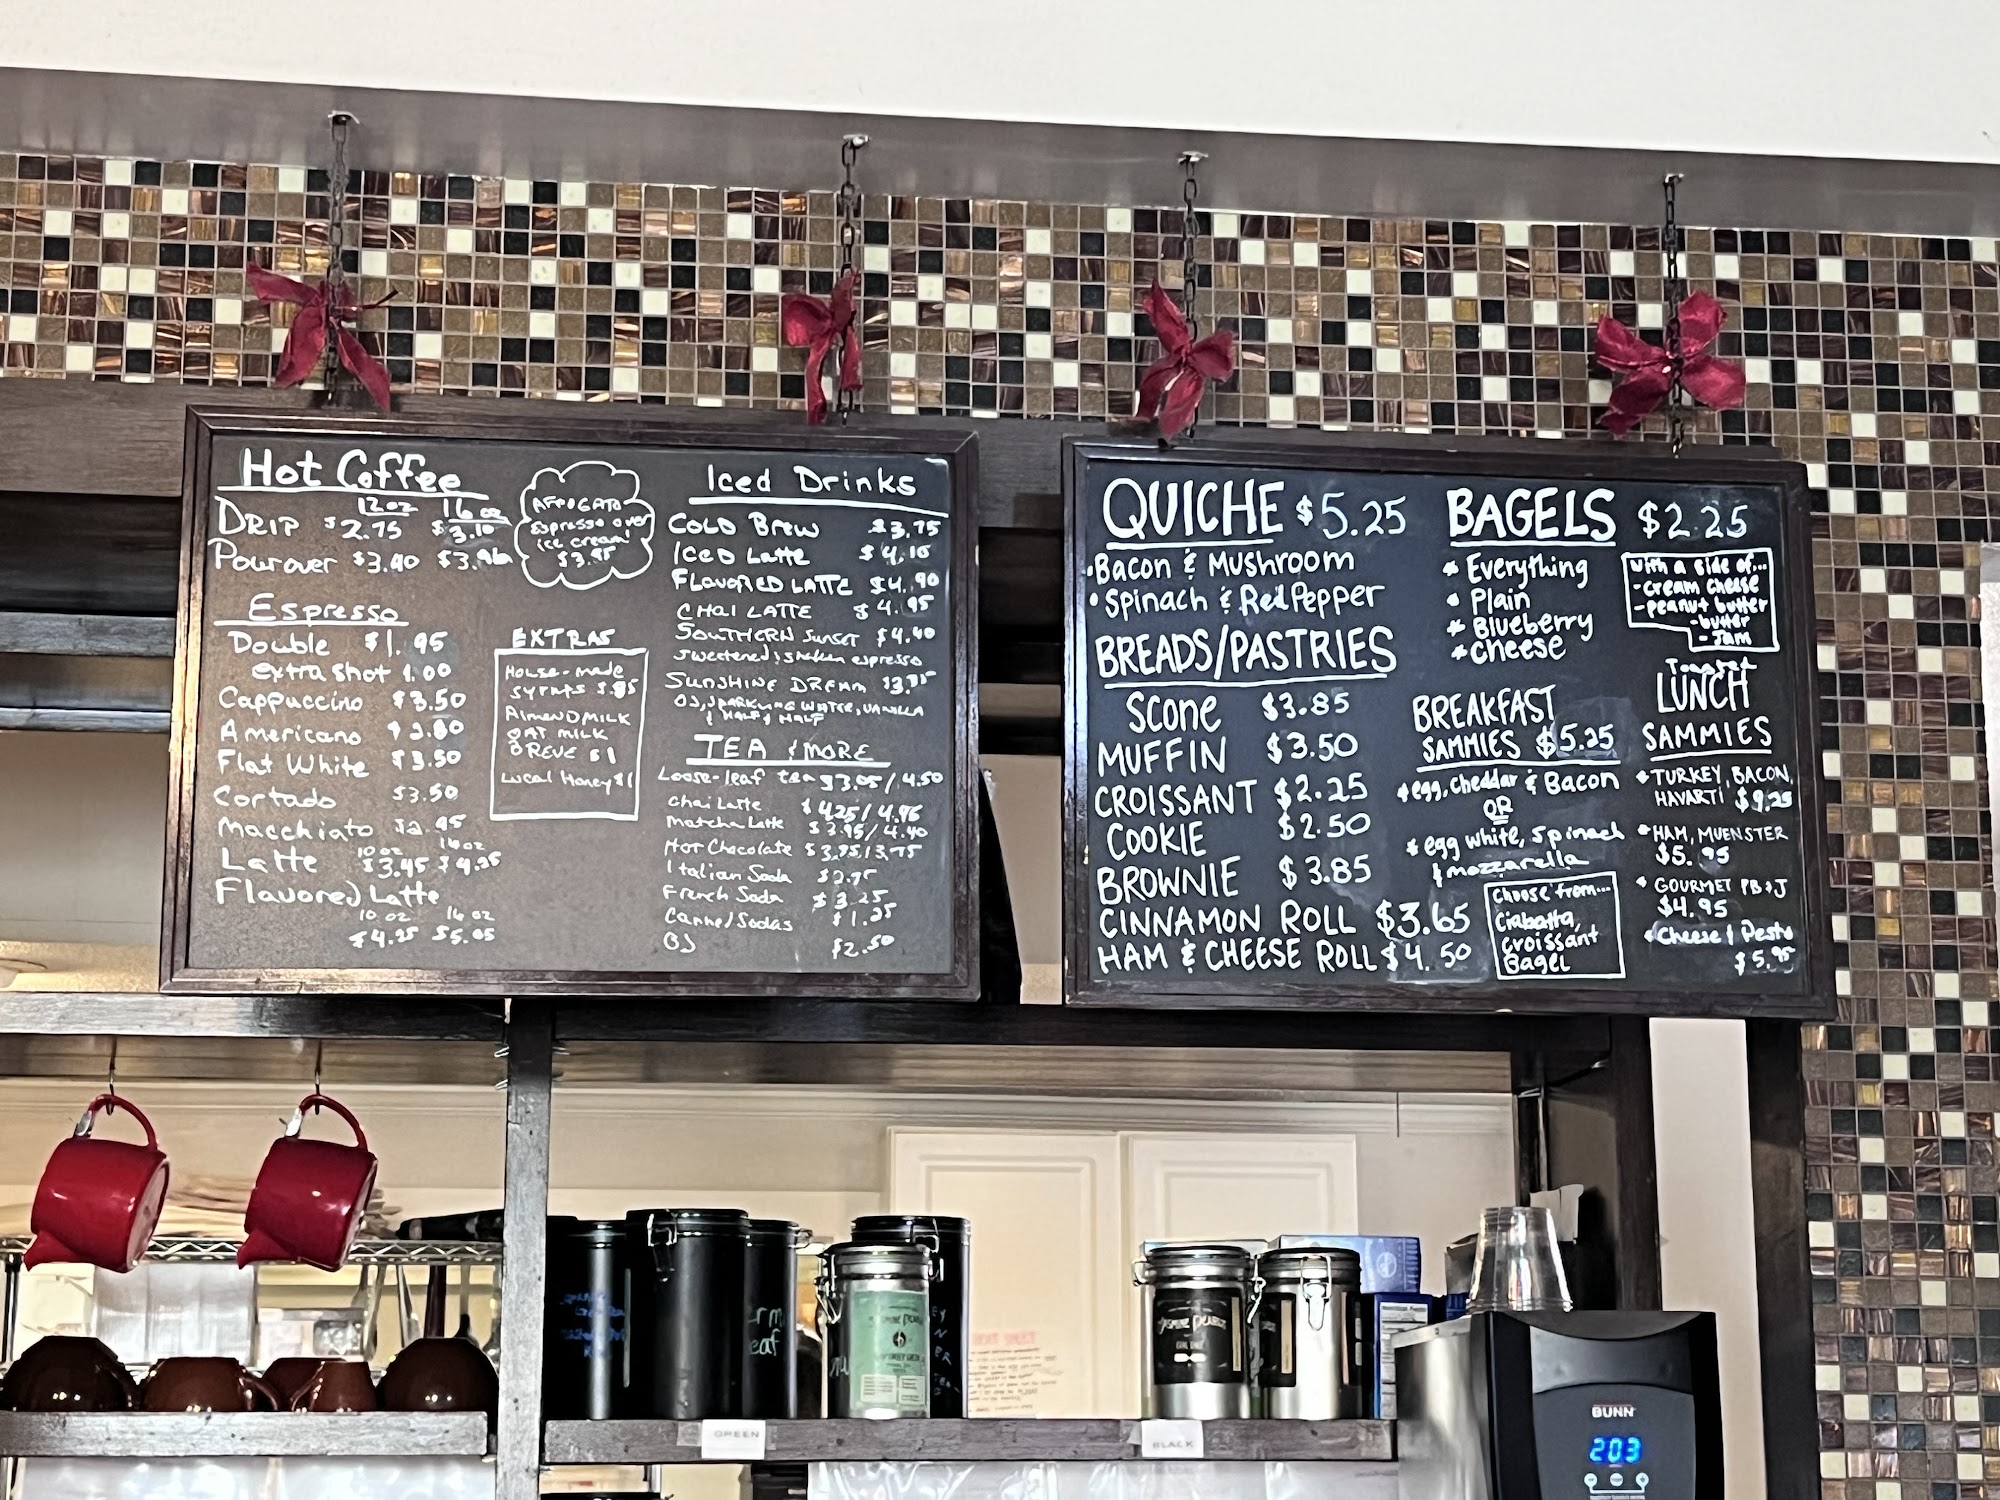 Hot Coffee
12oz 16oz
DRIP $2.75 $3.10
Pour over $3.40
AFFOGATO
Espresso over
ice cream!
$3.95
Espresso
Double $1.95
extra shot 1.00
Cappuccino $3.50
Americano $2.80
Flat White $3.50
Cortado $3.50
Macchiato $2.95
10oz 16oz
Latte $3.45 $4.25
Flavored Latte
10 oz 16 oz
$4.25 $5.05
EXTRAS
House-made
syrups $.85
Almond milk
oat milk
BREVE $1
Local Honey $1
Iced Drinks
Cold Brew $3.75
Iced Latte $4.10
Flavored Latte $4.90
CHai LATTE $4.95
Southern Sunset $4.40
sweetened, shaken espresso
Sunshine Dream
OJ, Sparkling Water, Vanilla
& Half & Half
TEA & MORE
Loose-leaf tea $3.05/4.50
Chai Latte
Matcha Latte $3.95/4.40
Hot Chocolate
Italian Soda $2.75
French Soda $3.25
Canned Sodas $1.25
OJ $2.50
QUICHE $5.25
•Bacon & Mushroom
•Spinach & Red Pepper
BREADS/PASTRIES
Scone $3.85
MUFFIN $3.50
CROISSANT $2.25
COOKIE $2.50
BROWNIE $3.85
CINNAMON ROLL $3.65
HAM & CHEESE ROLL $4.50
BAGELS $2.25
* Everything
* Plain
* Blueberry
* cheese
with a side of...
-cream cheese
-peanut butter
-butter
-Jam
BREAKFAST
SAMMIES $5.25
*egg, cheddar & Bacon
OR
*egg white, spinach
& mozzarella
Choose from...
Ciabatta,
croissant
Bagel
Toasted
LUNCH
SAMMIES
*TURKEY, BACON,
HAVARTI $9.25
*HAM, MUENSTER
$5.95
* GOURMET PB&J
$4.95
*Cheese & Pesto
$5.95
GREEN
BLACK
BUNN
203